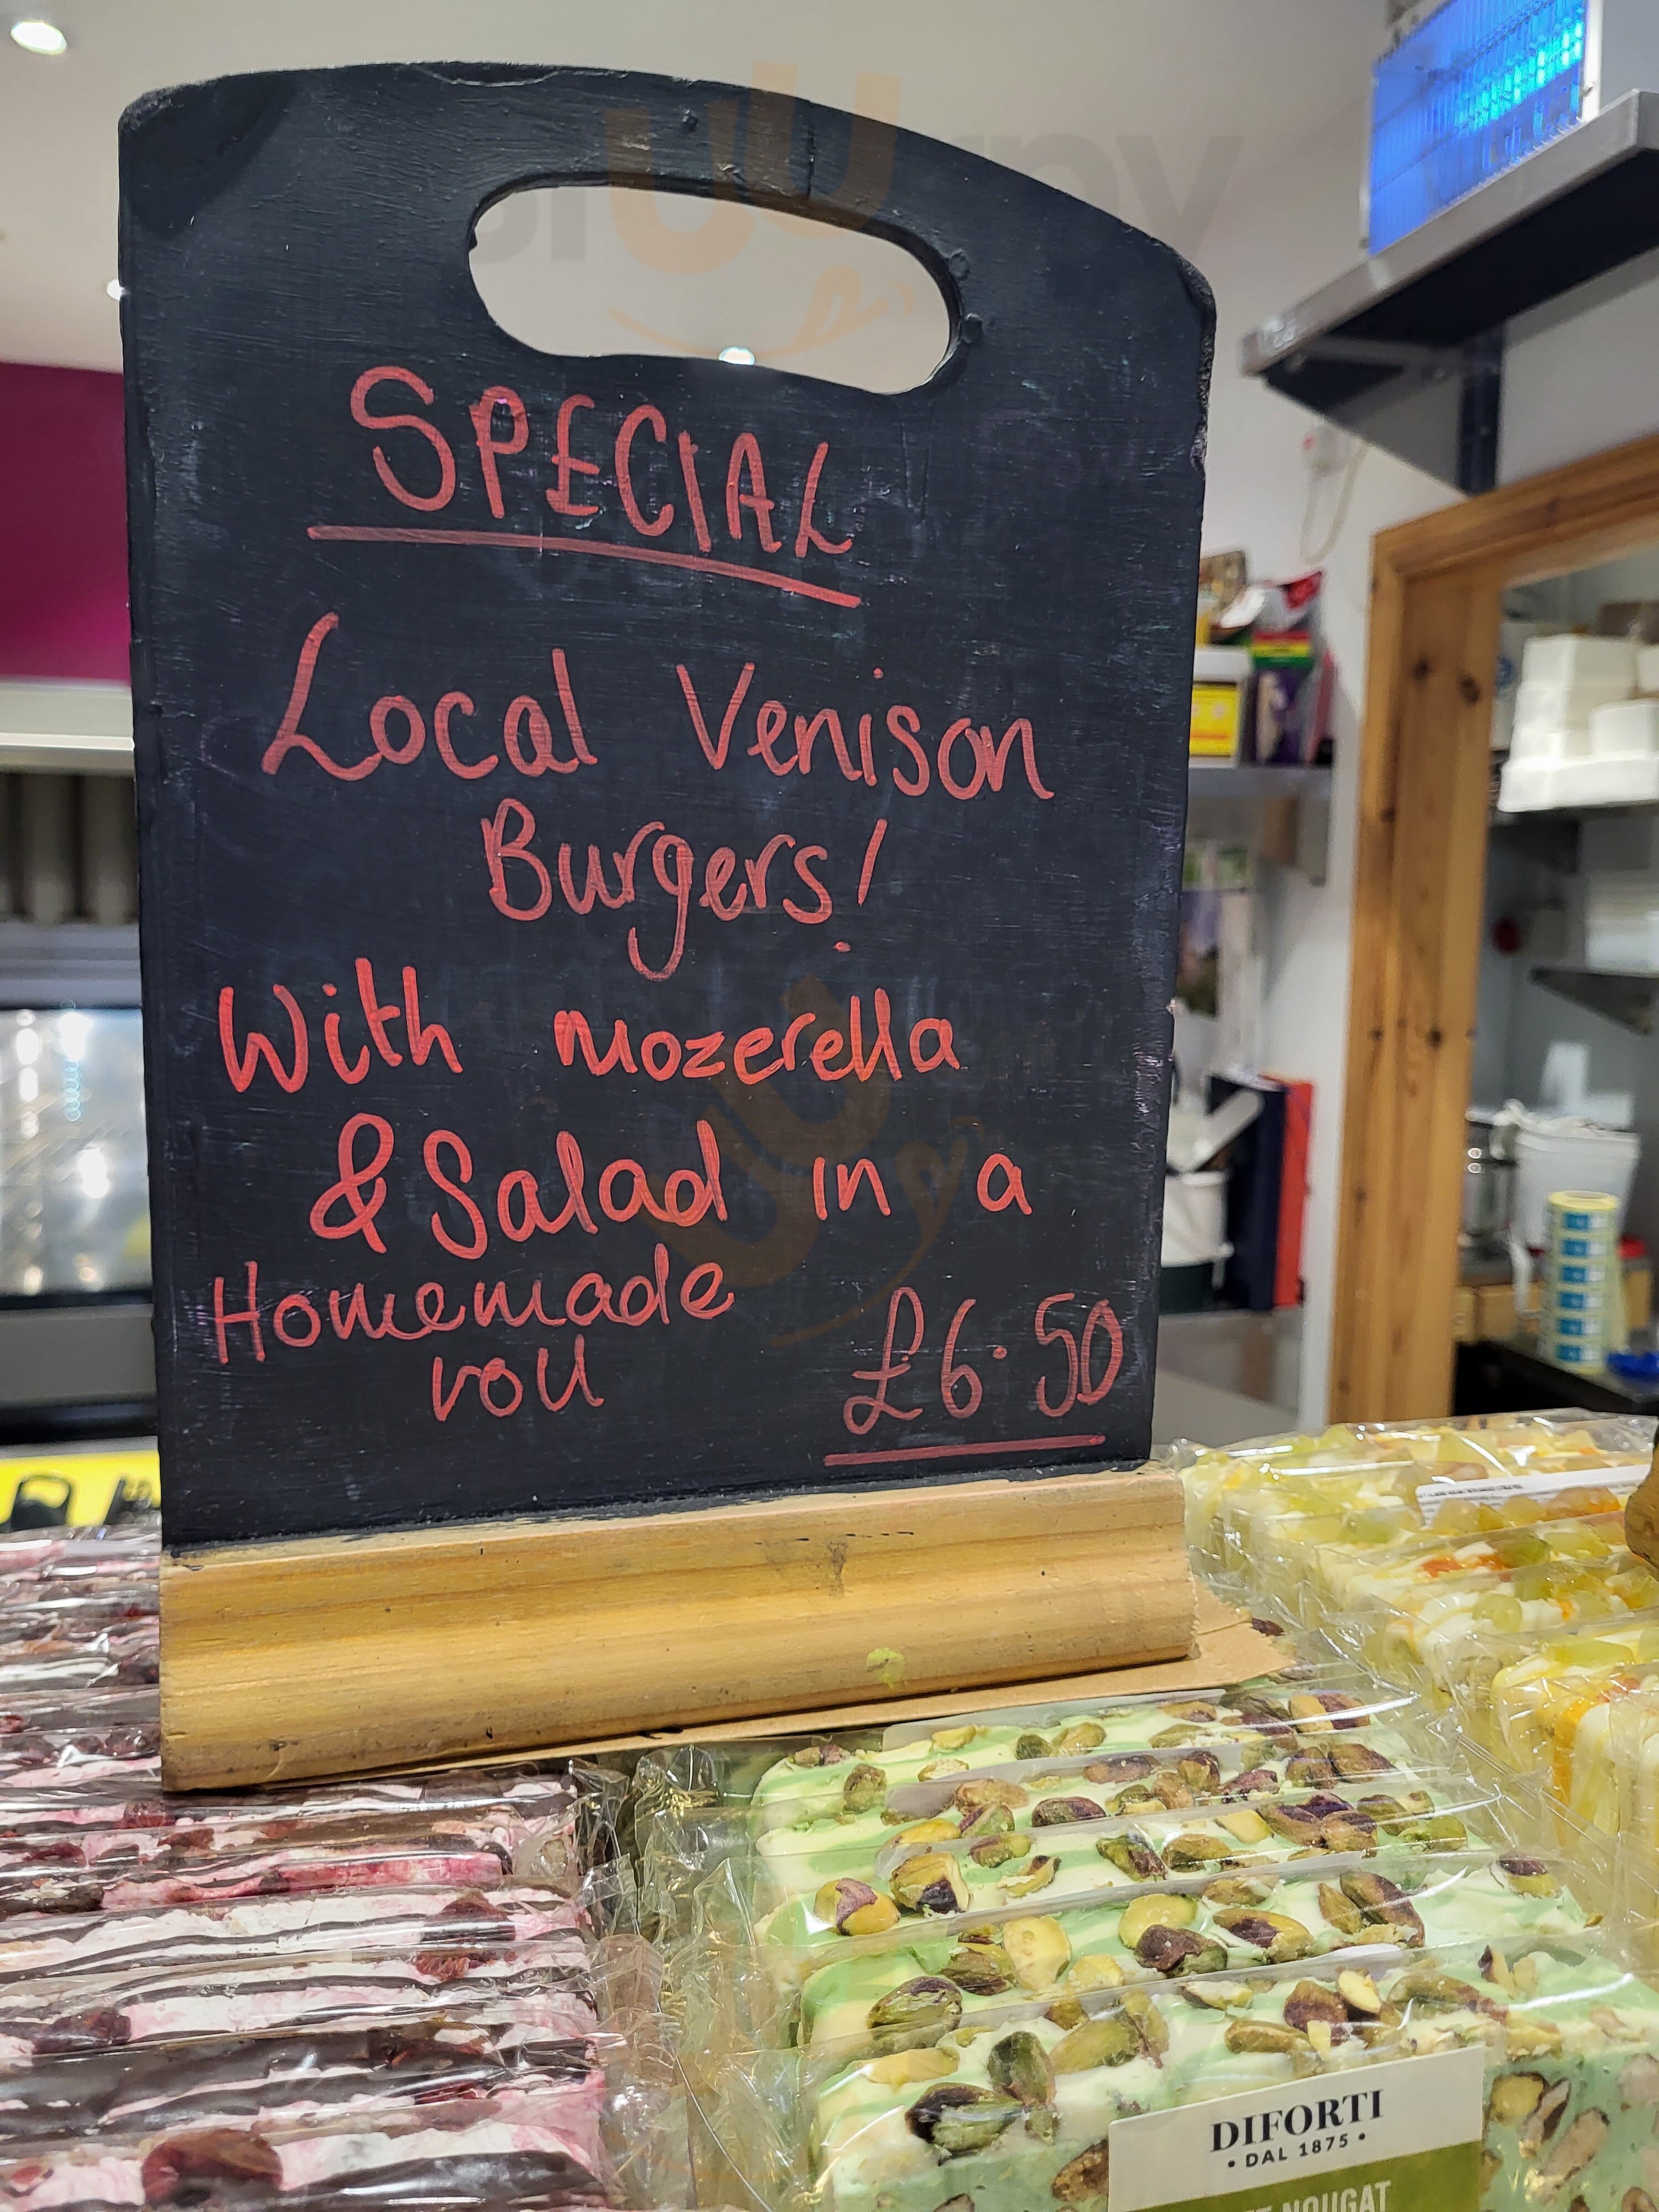 SPECIAL
Local Venison
Burgers!
With mozerella
& Salad in a
Homemade
roll
£6.50
DIFORTI
• DAL 1875 •
NOUGAT